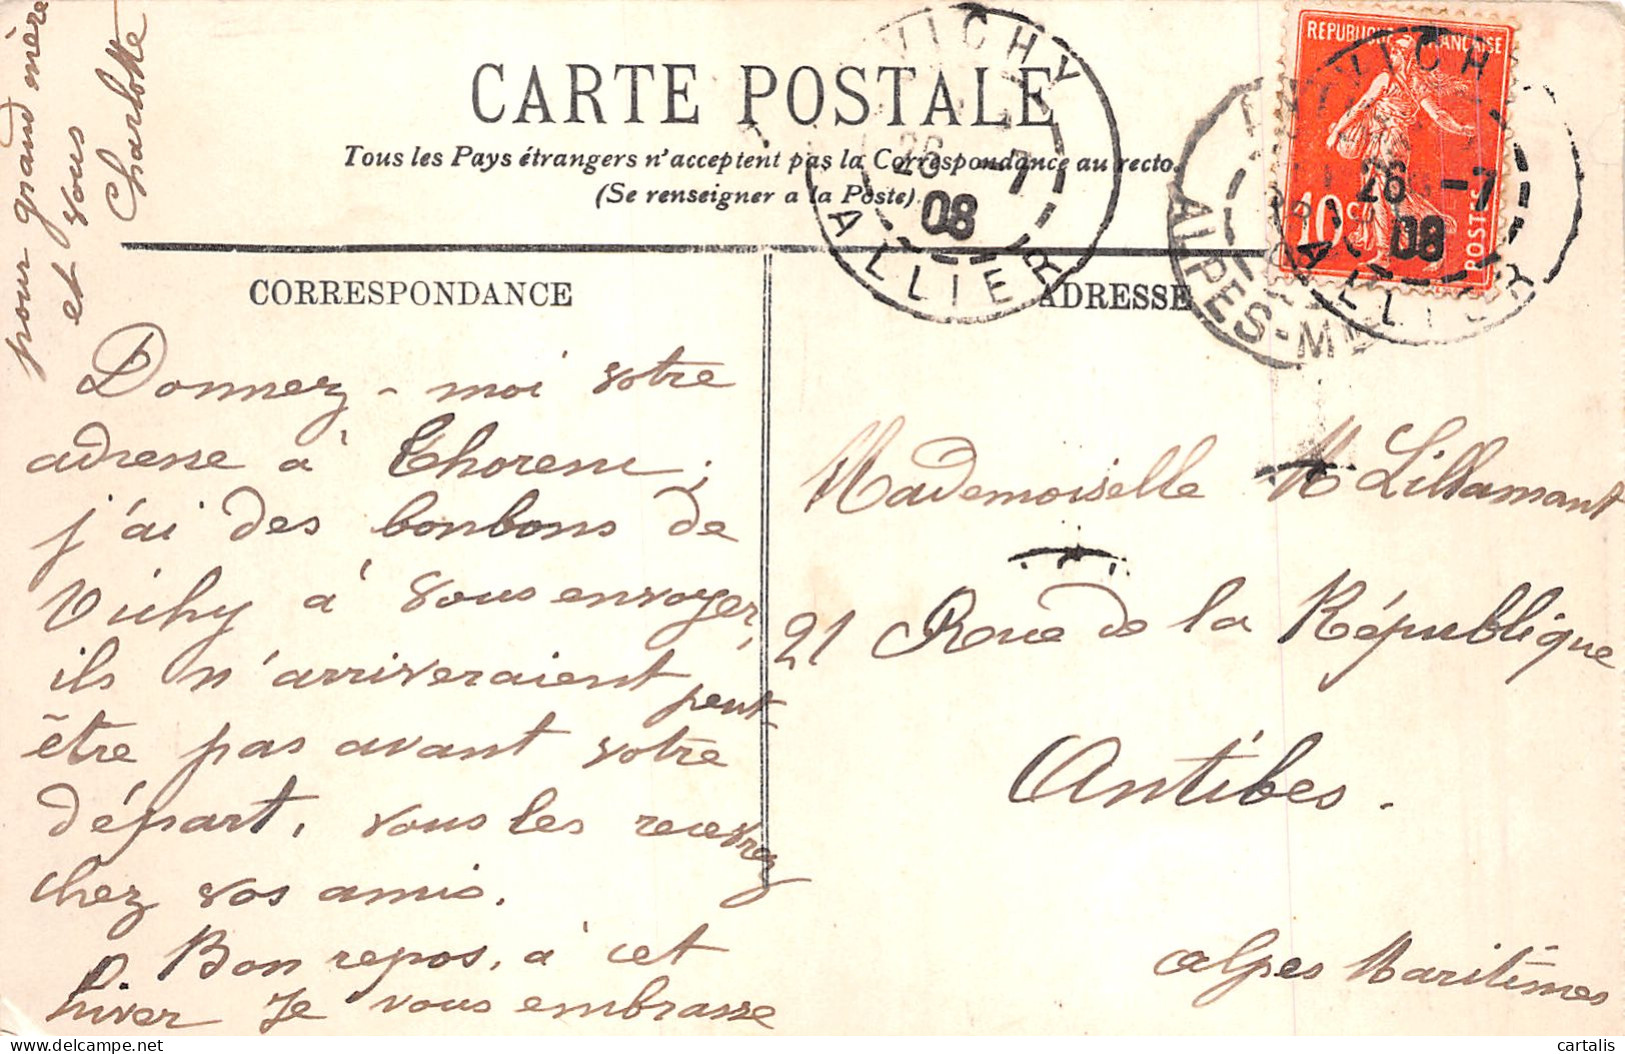 CARTE POSTALE
Tous les Pays étrangers n'acceptent pas la Correspondance au recto.
(Se renseigner a la Poste)
CORRESPONDANCE
Donnez-moi votre
adresse à Thorenc;
j'ai des bonbons de
Vichy à vous envoyer,
ils n'arriveraient peut-
être pas avant votre
départ, vous les recevrez
chez vos amis.
Bon repos, à cet
hiver Je vous embrasse
pour grand mère
et vous
Charlotte
ADRESSE
Mademoiselle M Lillamant
21 Rue de la République
Antibes.
Alpes Maritimes
VICHY
26 -7
08
ALLIER
REPUBLIQUE FRANÇAISE
10 c
POSTES
VICHY
26 -7
08
ALLIER
ALPES-M
delcampe.net
cartalis